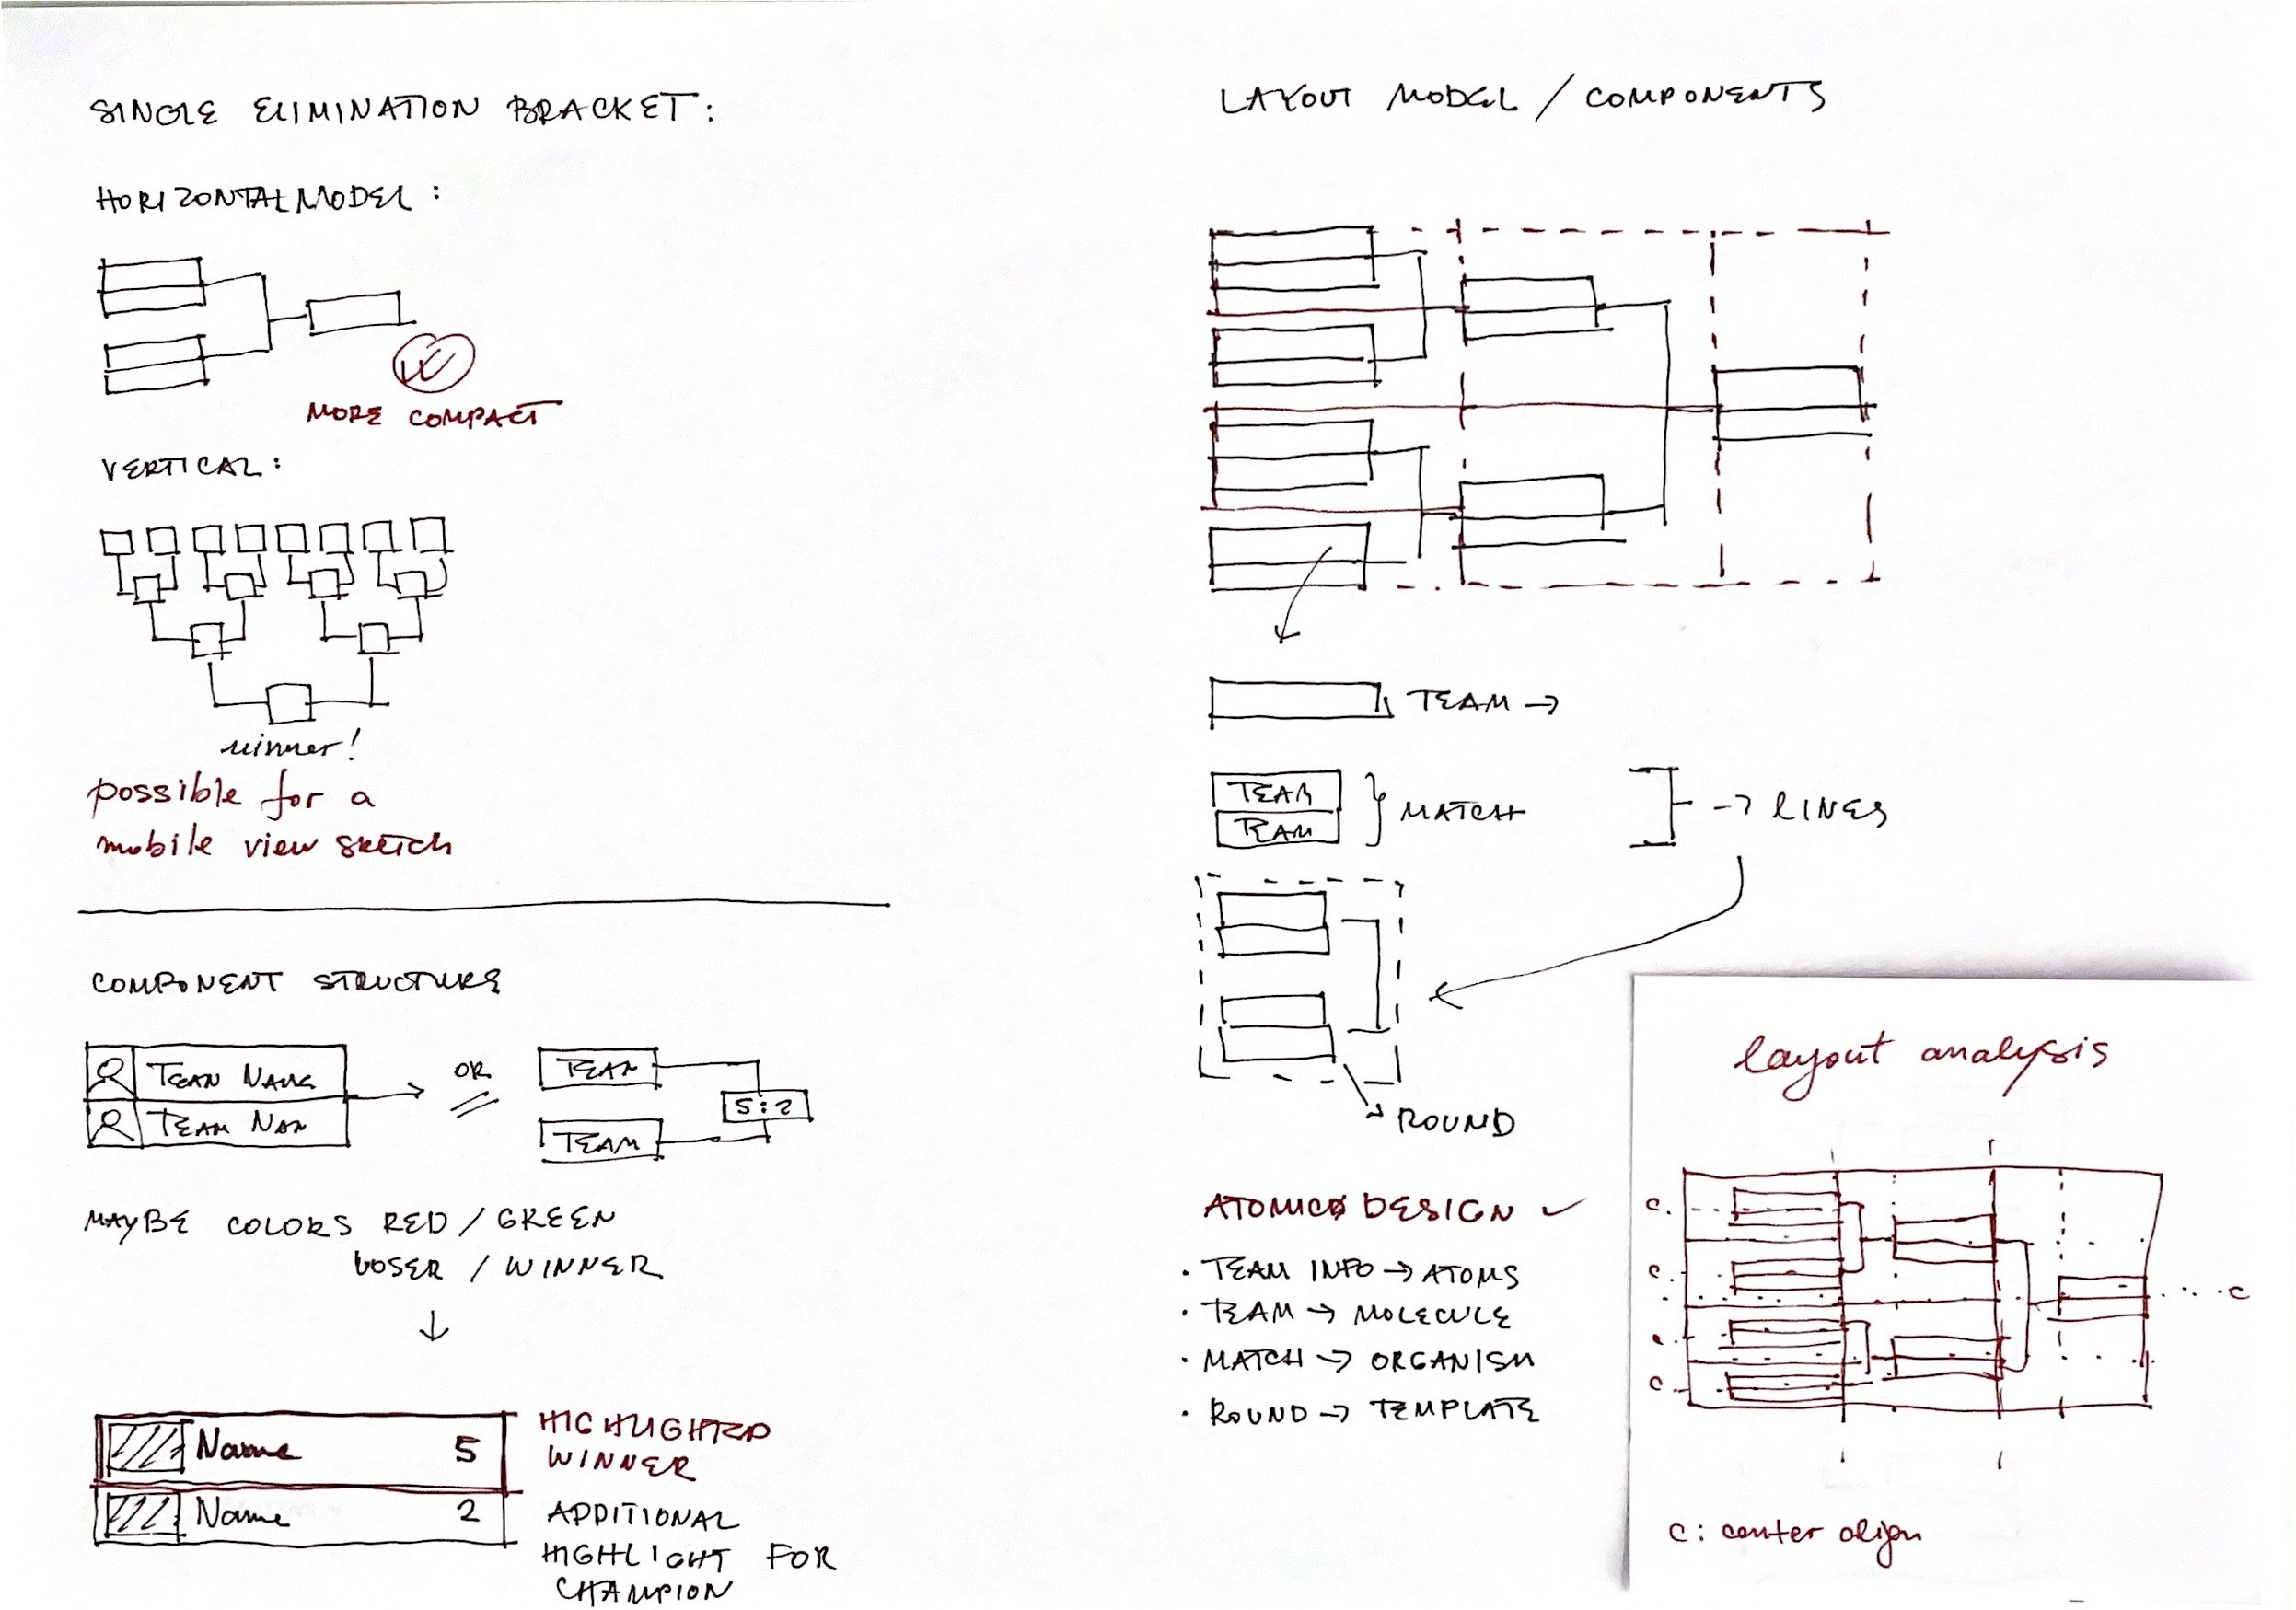 SINGLE ELIMINATION BRACKET:
HORIZONTAL MODEL:
MORE COMPACT
VERTICAL:
winner!
possible for a
mobile view sketch
COMPONENT STRUCTURE
TEAM NAME
TEAM NAM
OR
TEAM
5:2
TEAM
MAYBE COLORS RED / GREEN
LOSER / WINNER
Name 5
Name 2
HIGHLIGHTED
WINNER
ADDITIONAL
HIGHLIGHT FOR
CHAMPION
LAYOUT MODEL / COMPONENTS
TEAM →
TEAM
TEAM
MATCH
→ LINES
ROUND
ATOMIC DESIGN ✓
· TEAM INFO → ATOMS
· TEAM → MOLECULE
· MATCH → ORGANISM
· ROUND → TEMPLATE
layout analysis
c.
c.
c.
c
c: center align